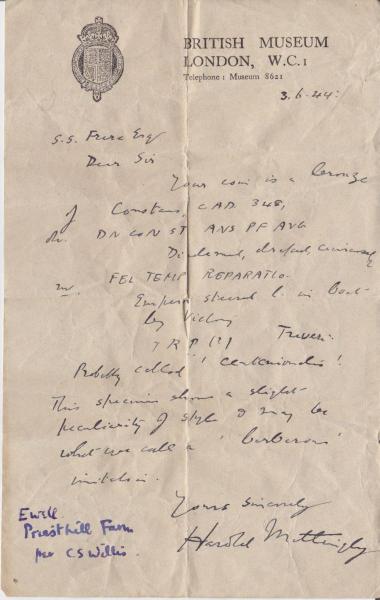 BRITISH MUSEUM
LONDON, W.C.1
Telephone: Museum 8621
3.6.44.
S.S. Frere Esq
Dear Sir
Your coin is a bronze
of Constans, C AD 348,
obv. DN CONST ANS PF AVG
Diademed, draped, cuirassed
rev. FEL TEMP REPARATIO.
Emperor steered l. in boat
by Victory
TRP Treveri.
Probably called 'centenionalis'.
This specimen shows a slight
peculiarity of style & may be
what we call a 'barbarous'
imitation.
Yours sincerely
Harold Mattingly
Ewell
Priesthill Farm
per C.S. Willis.